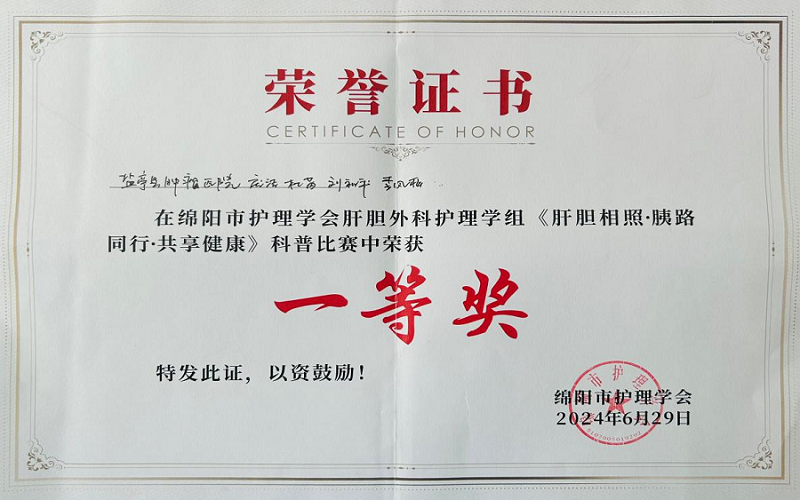 荣誉证书
CERTIFICATE OF HONOR
盐亭县肿瘤医院 刘和平
在绵阳市护理学会肝胆外科护理学组《肝胆相照·胰路
同行·共享健康》科普比赛中荣获
一等奖
特发此证，以资鼓励！
绵阳市护理学会
2024年6月29日